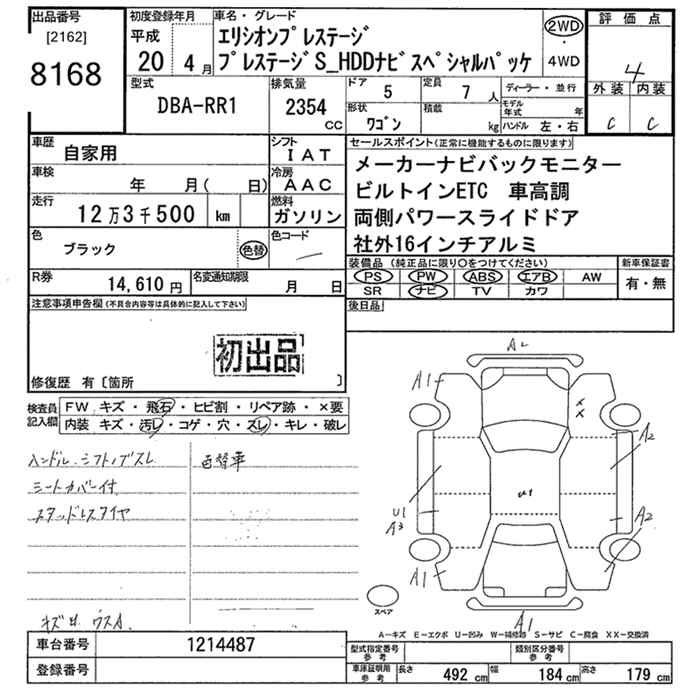 出品番号
[2162]
8168
初度登録年月
平成
20 4月
車名・グレード
エリシオンプレステージ
プレステージS_HDDナビスペシャルパッケ
2WD
・
4WD
評価点
4
外装 内装
C C
型式
DBA-RR1
排気量
2354
CC
ドア
5
定員
7人
ディーラー・並行
形状
ワゴン
積載
kg
モデル年式 年
ハンドル 左・右
車歴
自家用
シフト
IAT
車検
年 月( 日)
冷房
AAC
走行
12万3千500 km
燃料
ガソリン
色
ブラック
色替
色コード
R券
14,610円
名変通知期限
月 日
セールスポイント(正常に機能するものに限ります)
メーカーナビバックモニター
ビルトインETC 車高調
両側パワースライドドア
社外16インチアルミ
装備品(純正品に限り○をつけてください)
PS PW ABS エアB AW
SR ナビ TV カワ
新車保証書
有・無
後日品
注意事項申告欄(不具合内容等は具体的に記入して下さい)
初出品
修復歴 有〔箇所 〕
検査員
記入欄
FW キズ・飛石・ヒビ割・リペア跡・×要
内装 キズ・汚レ・コゲ・穴・スレ・キレ・破レ
ハンドル、シフトノブスレ
シートカバー付
スタッドレスタイヤ
色替車
キズ凹 ウスA
A2
A1
××
A2
U1
U1
A3
A2
A1
A1
A1
スペア
A−キズ E−エクボ U−凹み W−補修跡 S−サビ C−腐食 XX−交換済
車台番号
1214487
登録番号
型式指定番号
参考
類別区分番号
参考
車庫証明用
参考
長さ 492 cm 幅 184 cm 高さ 179 cm